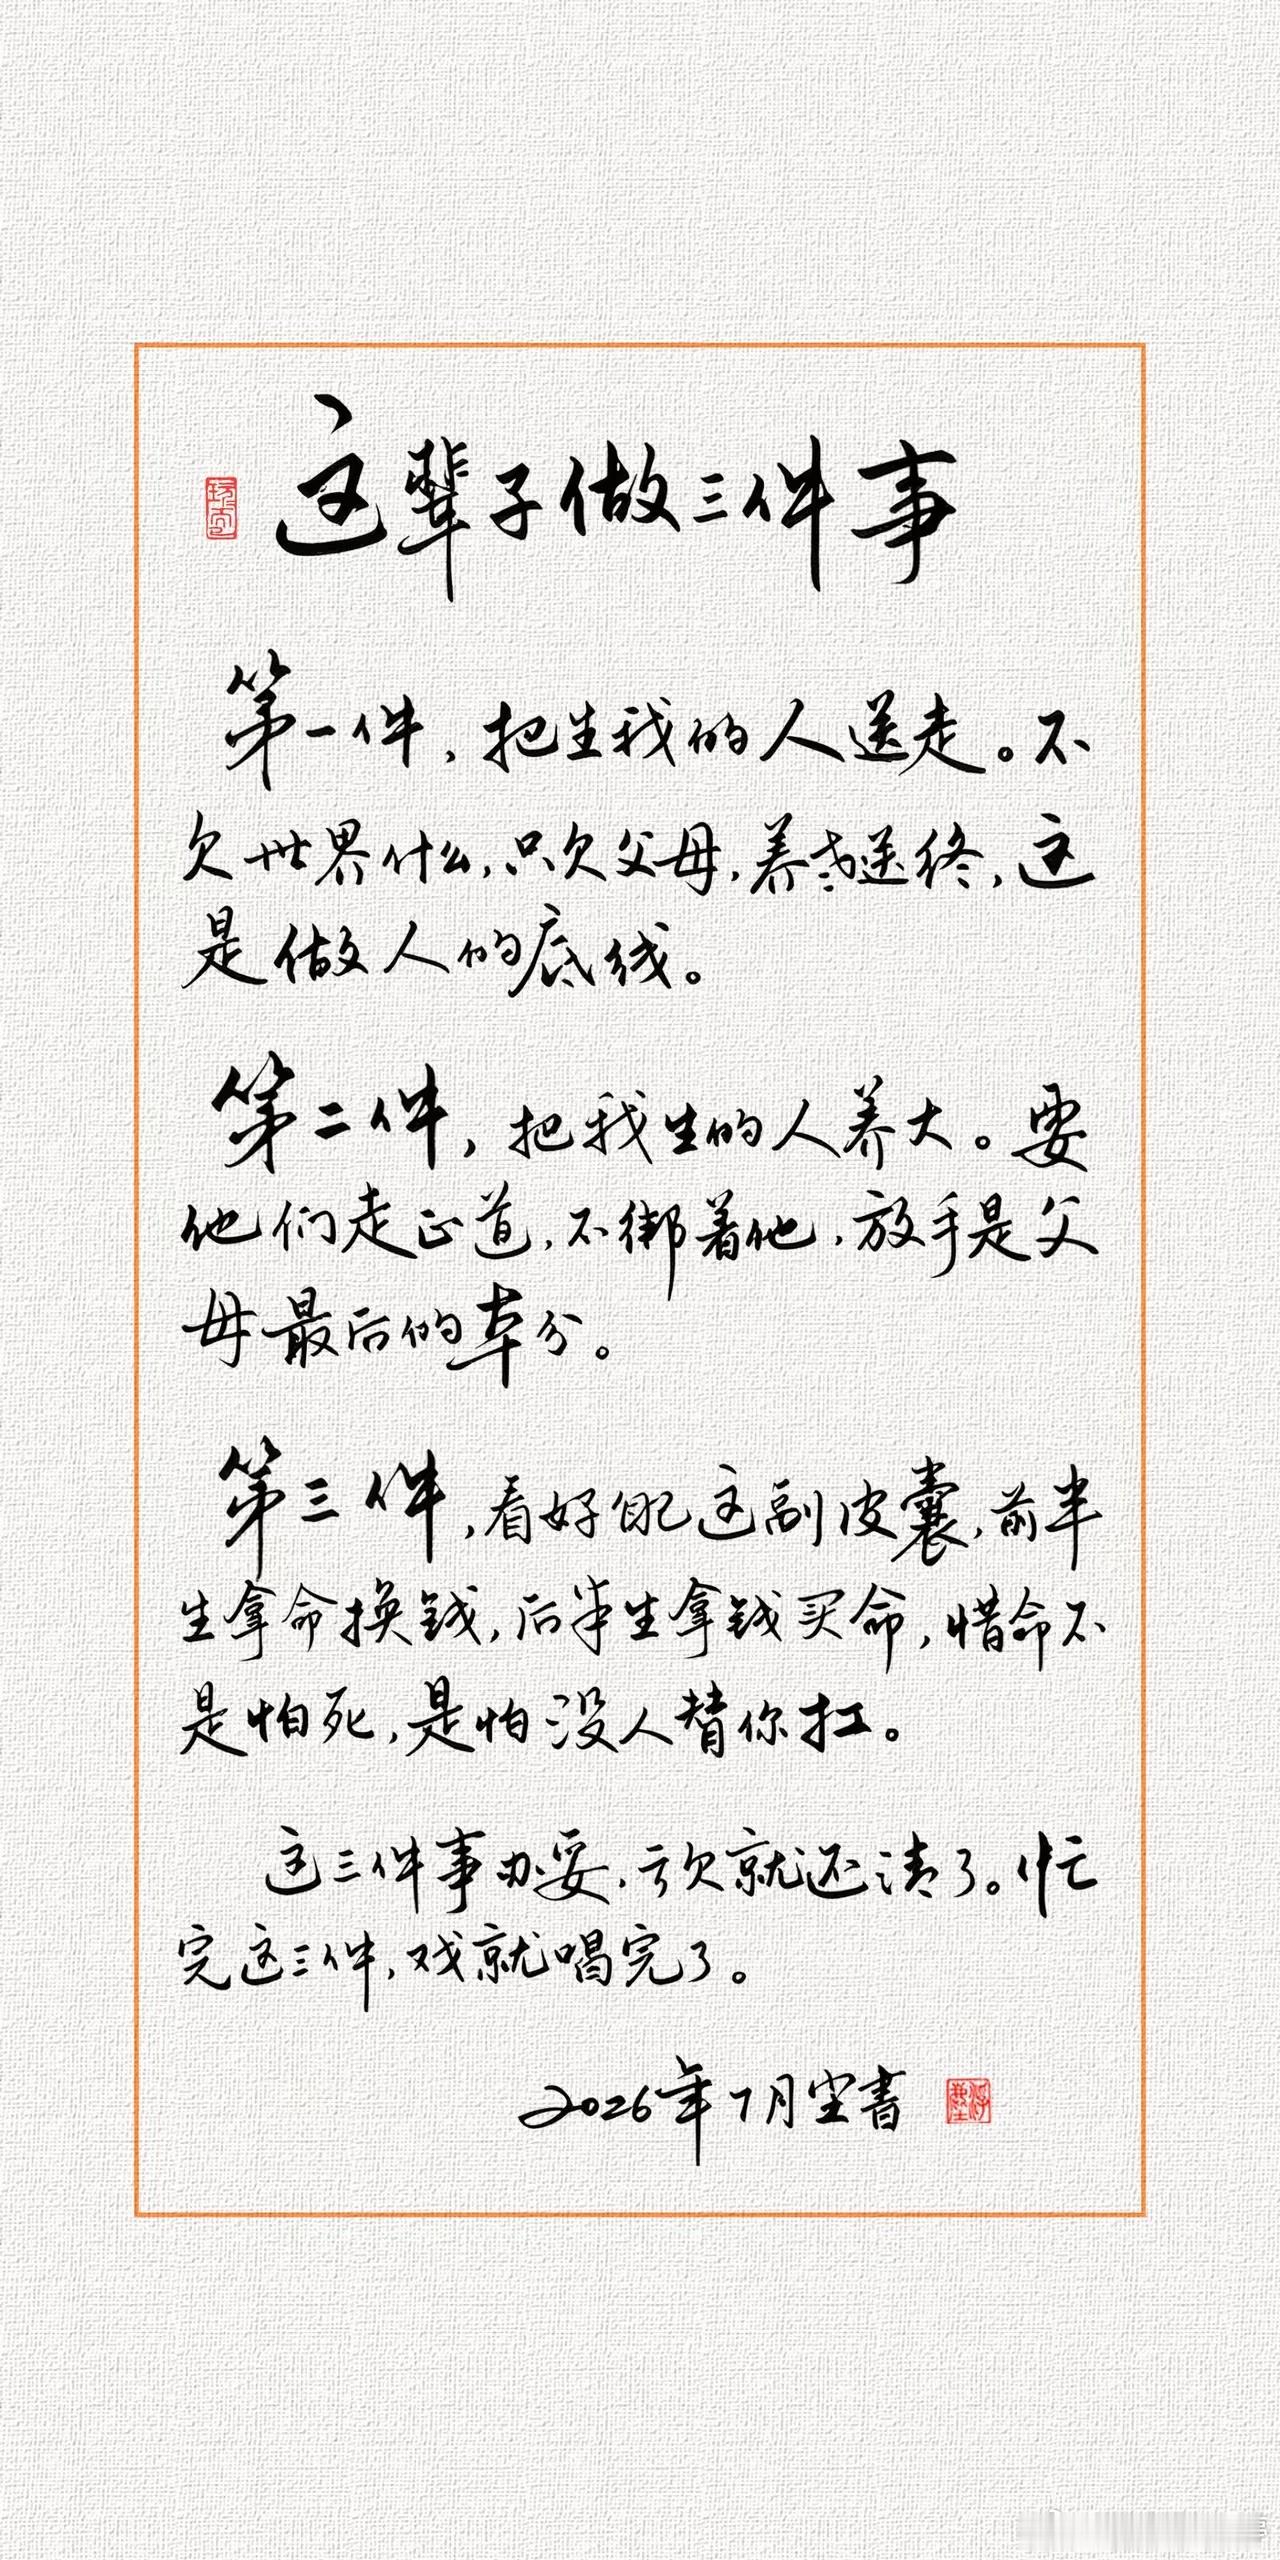 这辈子做三件事
第一件，把生我的人送走。不
欠世界什么，只欠父母，养老送终，这
是做人的底线。
第二件，把我生的人养大。要
他们走正道，不绑着他，放手是父
母最后的本分。
第三件，看好自己这副皮囊，前半
生拿命换钱，后半生拿钱买命，惜命不
是怕死，是怕没人替你扛。
这三件事办妥，亏欠就还清了。忙
完这三件，戏就唱完了。
2026年7月尘书